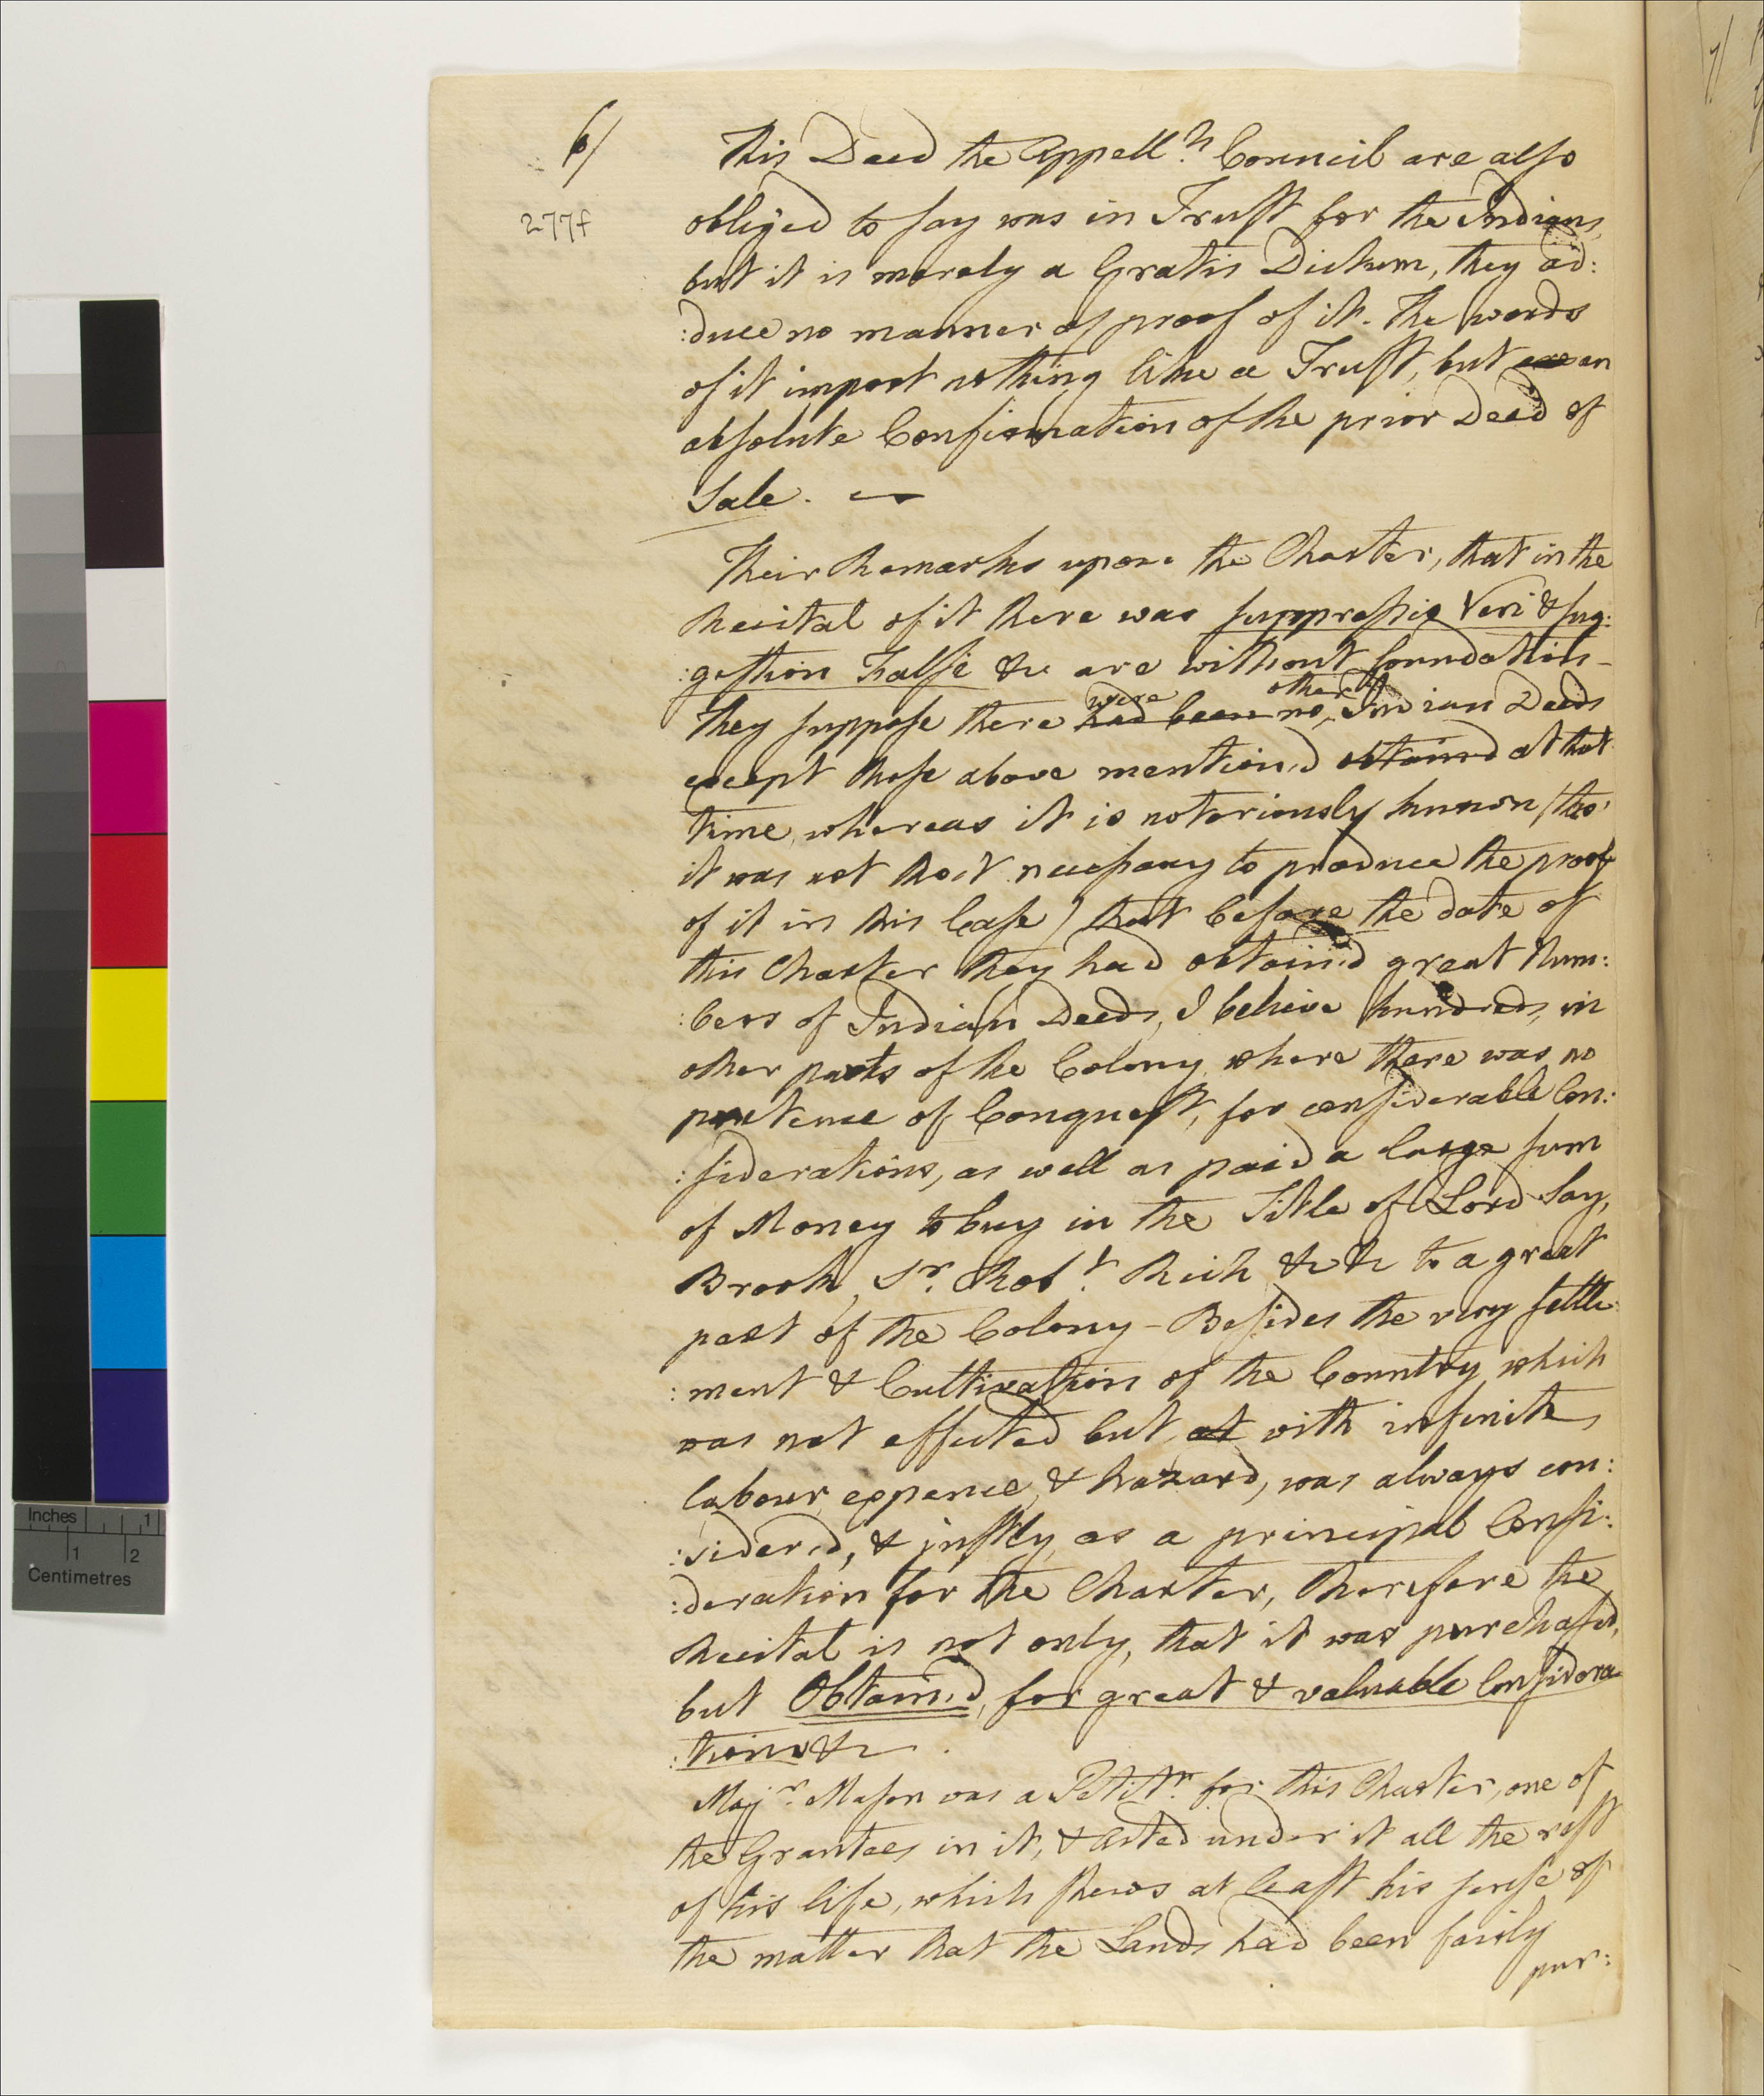 6/
277f
This Deed the Appell.ts Council are also
obliged to say was in Trust for the Indians,
but it is merely a Gratis Dictum, they ad:
:duce no manner of proof of it. The words
of it import nothing like a Trust, but an
absolute Confirmation of the prior Deed of
Sale.
Their Remarks upon the Charter, that in the
Recital of it there was suppressio Veri & sug:
:gestion Falsi &c are without foundation -
were other
They suppose there had been no Indian Deeds
except those above mention'd obtained at that
time, whereas it is notoriously known (tho'
it was not tho't necessary to produce the proof
of it in this Case) that before the date of
this Charter they had obtain'd great Num:
:bers of Indian Deeds, I believe hundreds, in
other parts of the Colony where there was no
pretence of Conquest, for considerable Con:
:siderations, as well as paid a large sum
of Money to buy in the Title of Lord Say,
Brook, Sr. Robt. Rich &c &c to a great
part of the Colony - Besides the very settle:
:ment & Cultivation of the Country which
was not effected but at with infinite
labour, expence, & hazard, was always con:
:sider'd, & justly as a principal Consi:
:deration for the Charter, Therefore the
Recital is not only, that it was purchased,
but Obtain'd, for great & valuable Considera
:tions &c
Majr. Mason was a Petitr. for this Charter, one of
the Grantees in it, & Acted under it all the rest
of his life, which shews at least his sense of
the matter that the Lands had been fairly
pur: